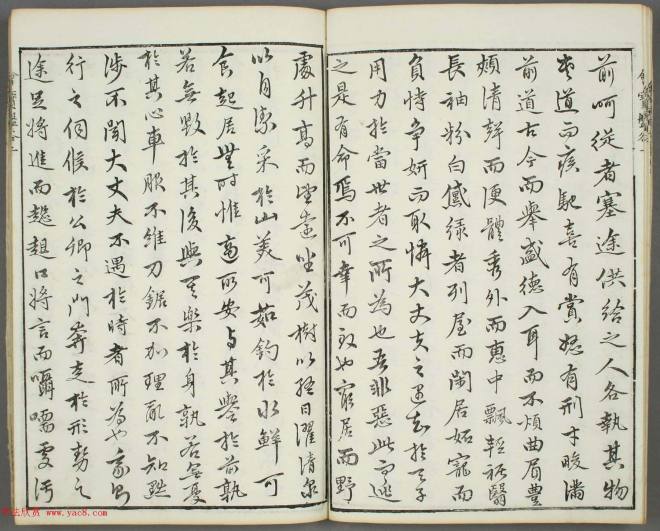 前呵從者塞途供給之人各執其物
夾道而疾馳喜有賞怒有刑才畯滿
前道古今而譽盛德入耳而不煩曲眉豐
頰清聲而便體秀外而惠中飄輕裾翳
長袖粉白黛綠者列屋而閑居妬寵而
負恃爭妍而取憐大丈夫之遇知於天子
用力於當世者之所為也吾非惡此而逃
之是有命焉不可幸而致也窮居而野
處升高而望遠坐茂樹以終日濯清泉
以自潔采於山美可茹釣於水鮮可
食起居無時惟適所安與其譽於前孰
若無毀於其後與其樂於身孰若無憂
於其心車服不維刀鋸不加理亂不知黜
陟不聞大丈夫不遇於時者所為也我則
行之伺候於公卿之門奔走於形勢之
途足將進而趑趄口將言而囁嚅處汙
书法欣赏 www.yac8.com